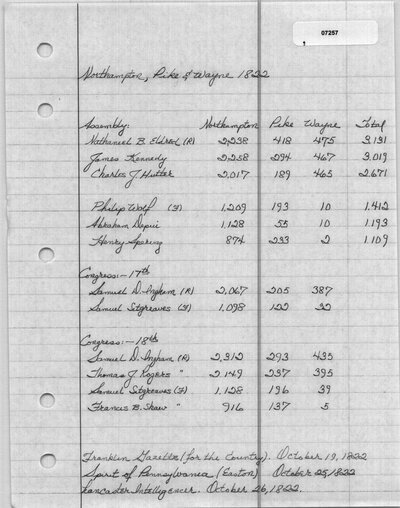 07257
Northampton, Pike & Wayne 1822
Assembly: Northampton Pike Wayne Total
Nathaniel B. Eldred (R) 2,238 418 475 3,131
James Kennedy 2,258 294 467 3,019
Charles J. Hutter 2,017 189 465 2,671
Philip Wolf (F) 1,209 193 10 1,412
Abraham Depui 1,128 55 10 1,193
Henry Spering 874 233 2 1,109
Congress:-17th
Samuel D. Ingham (R) 2,067 205 387
Samuel Sitgreaves (F) 1,098 122 32
Congress:-18th
Samuel D. Ingham (R) 2,312 293 435
Thomas J. Rogers " 2,149 237 395
Samuel Sitgreaves (F) 1,128 196 39
Francis B. Shaw " 916 137 5
Franklin Gazette (for the Country). October 19, 1822
Spirit of Pennsylvania (Easton) October 25, 1822
Lancaster Intelligencer. October 26, 1822.